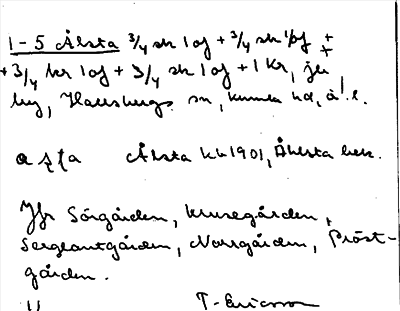 1-5 Ålsta 3/4 sk 1 of + 3/4 sk 1/3 of +
+ 3/4 kr 1 of + 3/4 sk 1 of + 1 kr, je
by, Hallsbergs sn, Kumla hd, Ö. l.
Ålsta kk 1901, Åhlsta bek.
Jfr Sörgården, Krusegården,
Sergeantgården, Norrgården, Prost-
gården.
T. Ericsson